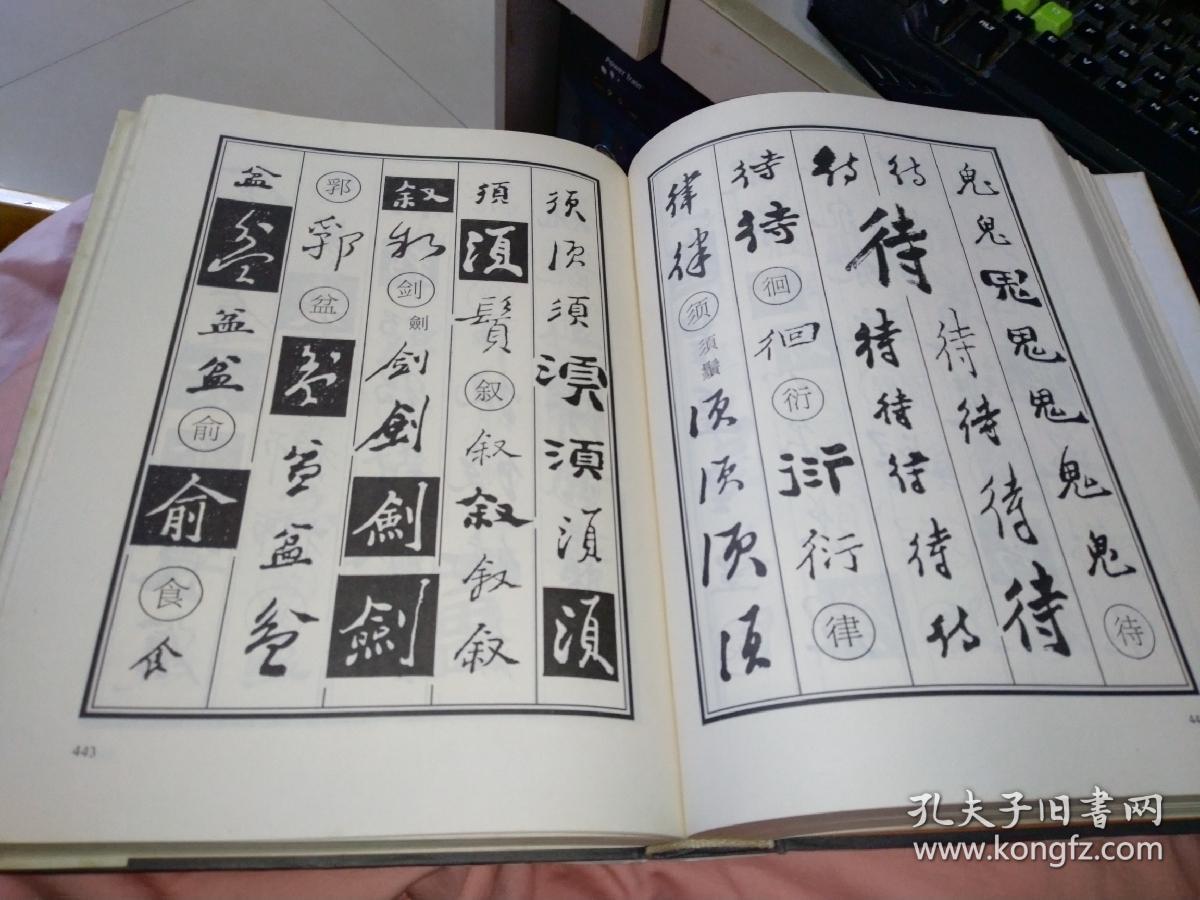 鬼鬼鬼鬼鬼鬼鬼待
待待待待待
待待待待待待待
待待徊徊衍衍衍律
律律须須鬚須須須須
44
須須須須須須須
須須鬚叙叙叙叙叙
叙叙剑劍剑劍劍劍
郭郭盆盆盆盆盆
盆盆盆盆俞俞食食
443
孔夫子旧书网
www.kongfz.com